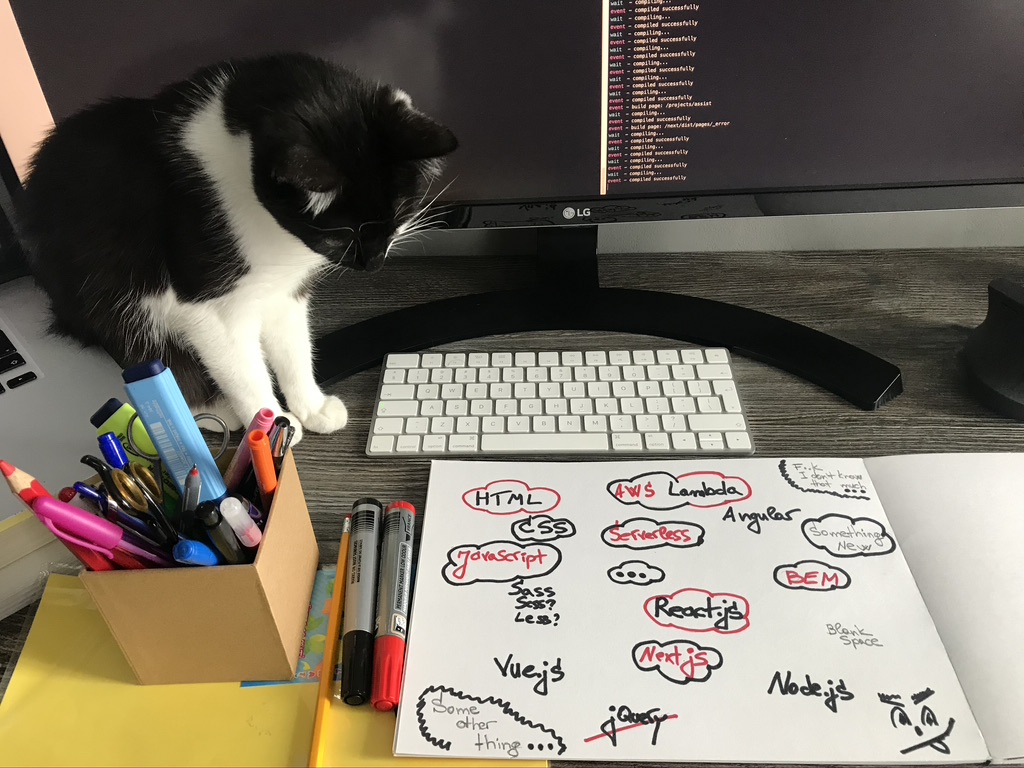 wait - compiling...
event - compiled successfully
wait - compiling...
event - compiled successfully
wait - compiling...
event - compiled successfully
wait - compiling...
event - compiled successfully
wait - compiling...
event - compiled successfully
wait - compiling...
event - compiled successfully
wait - compiling...
event - compiled successfully
event - build page: /projects/assist
wait - compiling...
event - compiled successfully
event - build page: /next/dist/pages/_error
wait - compiling...
event - compiled successfully
wait - compiling...
event - compiled successfully
wait - compiling...
event - compiled successfully
wait - compiling...
event - compiled successfully
LG
F..k
I don't know
that much
...
HTML
AWS Lambda
CSS
Angular
Serverless
Something
New
Javascript
...
BEM
Sass
Scss?
Less?
React.js
Blank
Space
Next.js
Vue.js
Node.js
Some
other
thing ...
jQuery